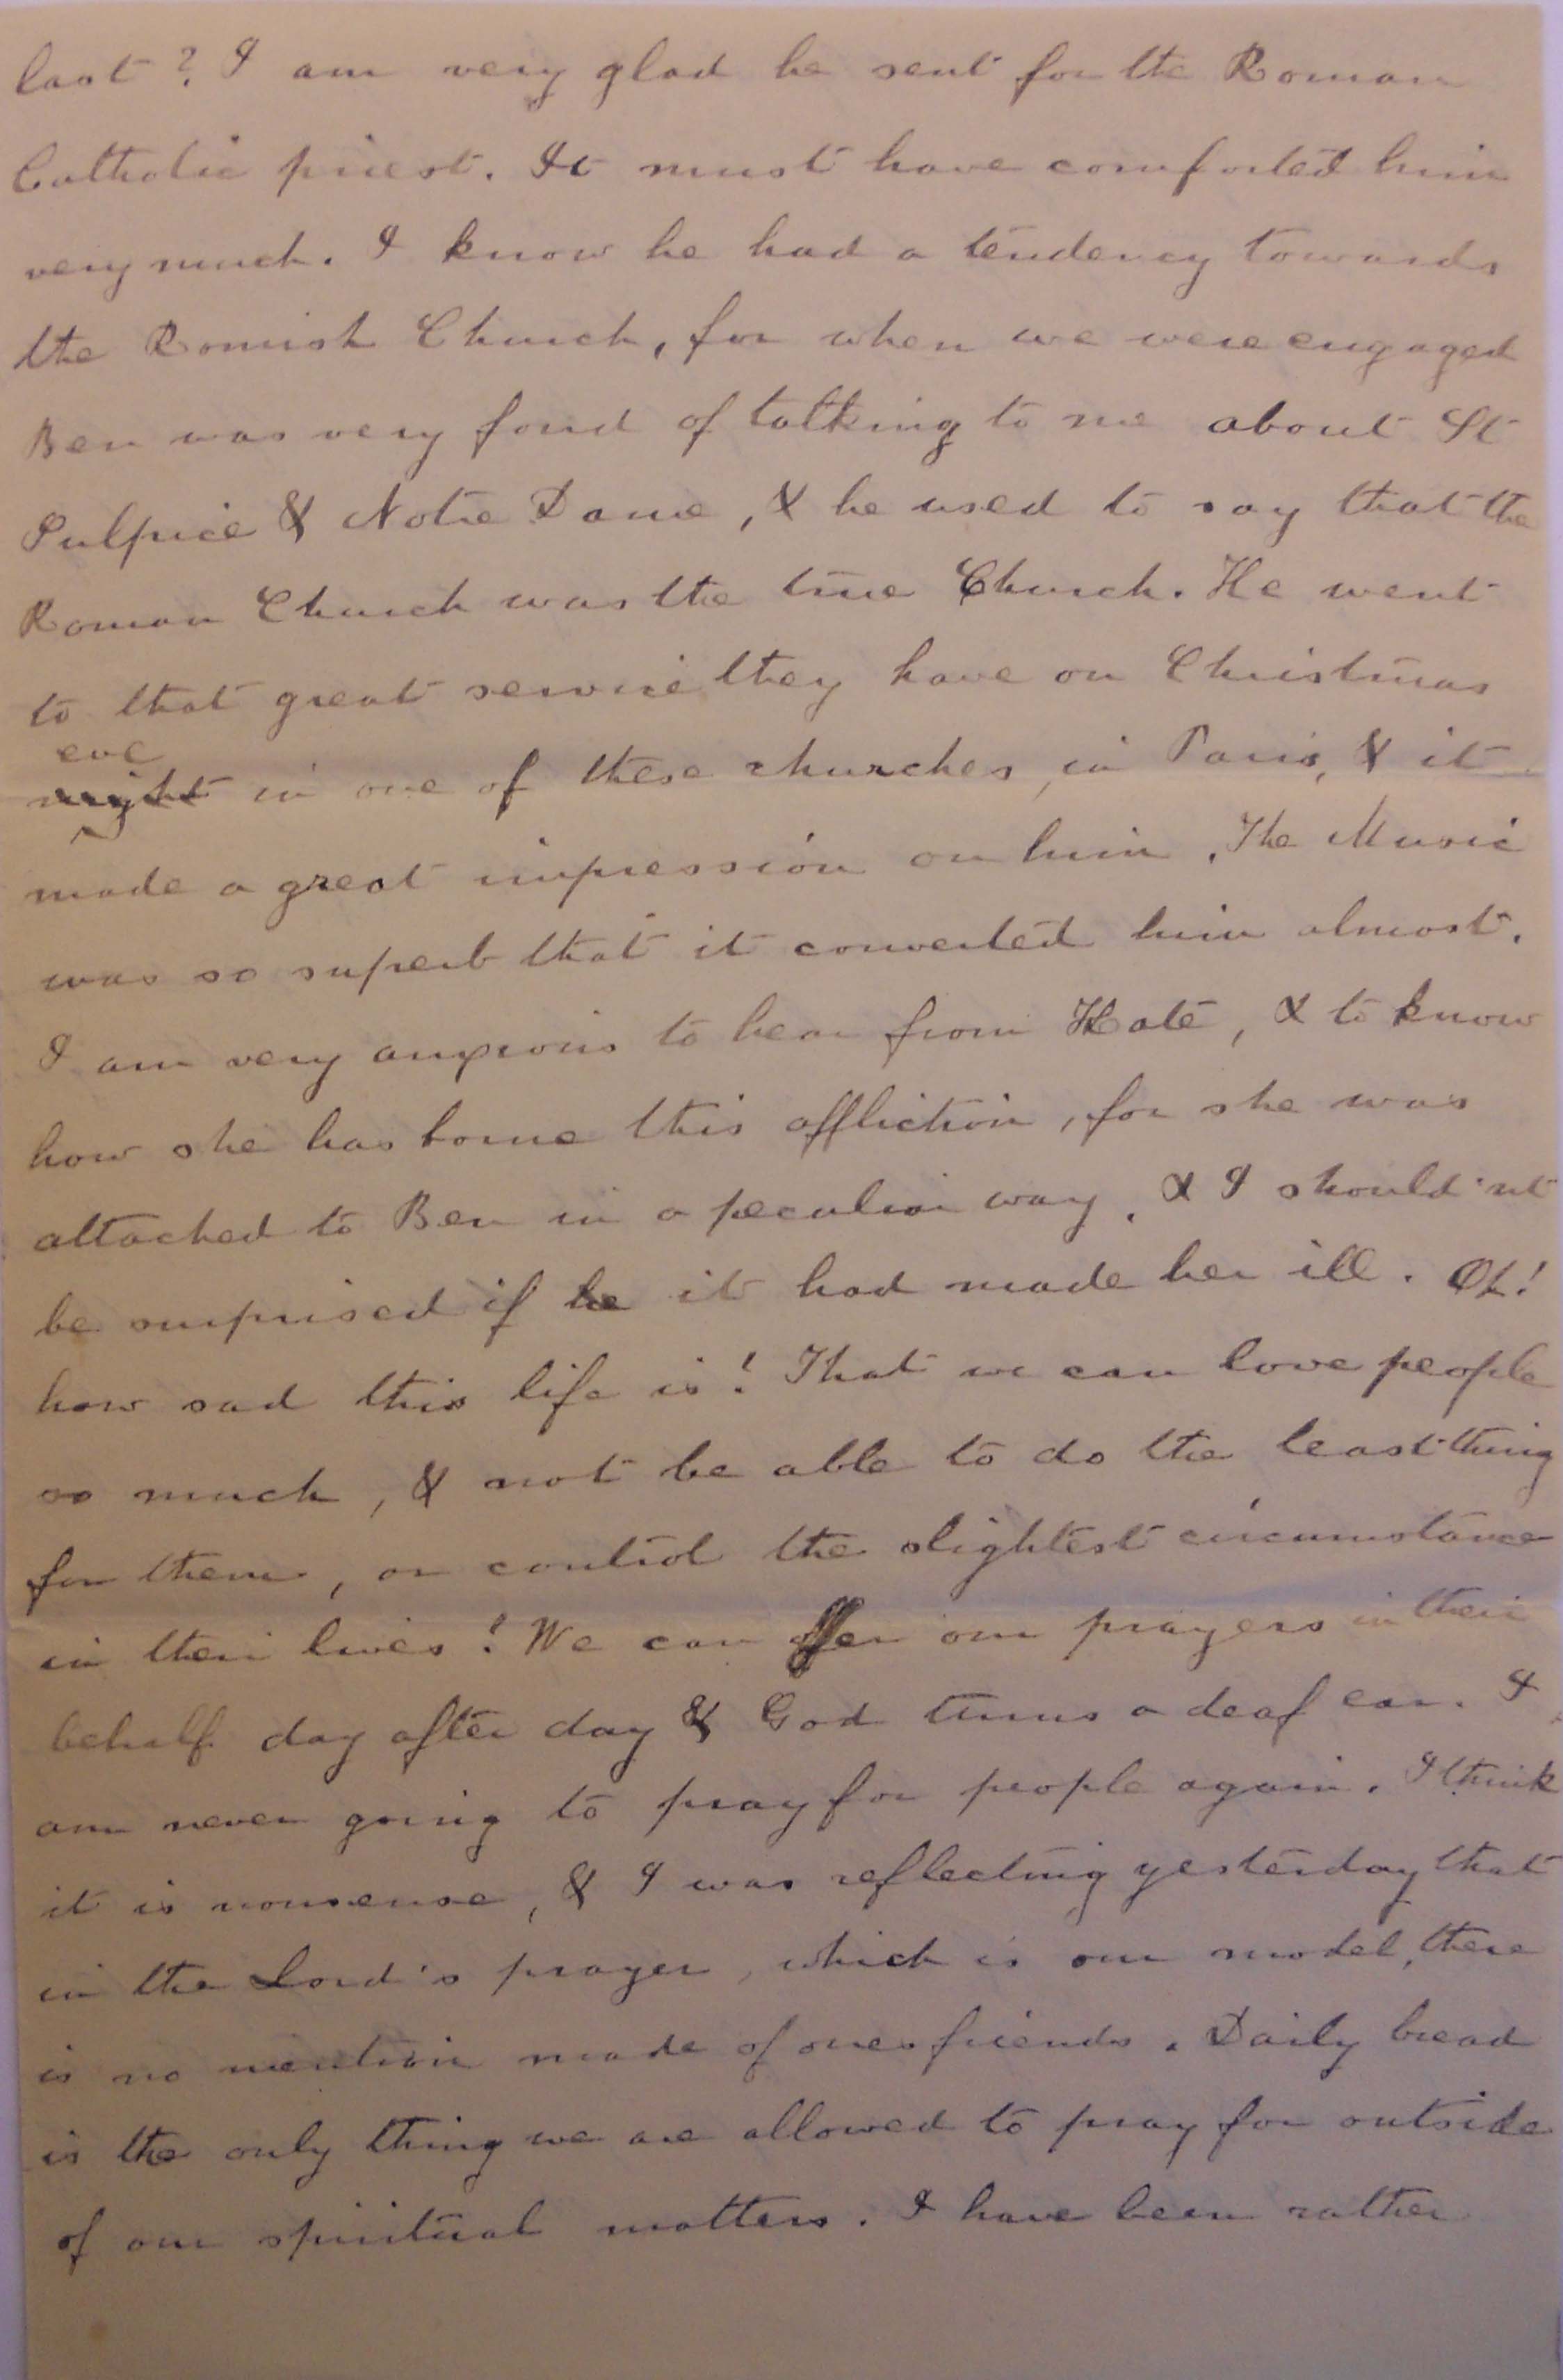 last? I am very glad he sent for the Roman
Catholic priest. It must have comforted him
very much. I know he had a tendency towards
the Romish Church, for when we were engaged
Ben was very fond of talking to me about St
Sulpice & Notre Dame, & he used to say that the
Roman Church was the true Church. He went
to that great service they have on Christmas
eve
night in one of these churches, in Paris, & it
made a great impression on him. The Music
was so superb that it converted him almost.
I am very anxious to hear from Kate, & to know
how she has borne this affliction, for she was
attached to Ben in a peculiar way, & I should'nt
be surprised if he it had made her ill. Oh!
how sad this life is! That we can love people
so much, & not be able to do the least thing
for them, or control the slightest circumstance
in their lives! We can offer our prayers in their
behalf day after day & God turns a deaf ear. I
am never going to pray for people again. I think
it is nonsense, & I was reflecting yesterday that
in the Lord's prayer, which is our model, there
is no mention made of ones friends. Daily bread
is the only thing we are allowed to pray for outside
of our spiritual matters. I have been rather